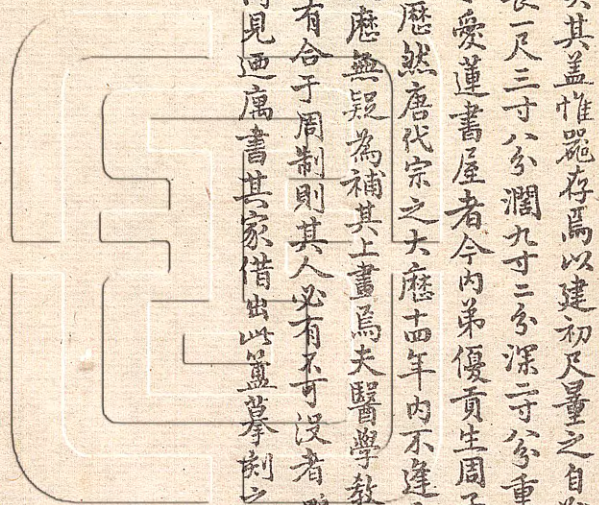 其盖惟器存焉以建初尺量之自
一尺三寸八分濶九寸二分深二寸八分重
愛蓮書屋者今内弟優貢生周
厯然唐代宗之大厯十四年内不逢
厯無疑為補其上畫焉夫醫學教
有合于周制則其人必有不可没者
見迺厲書其家借出此簠摹刻之